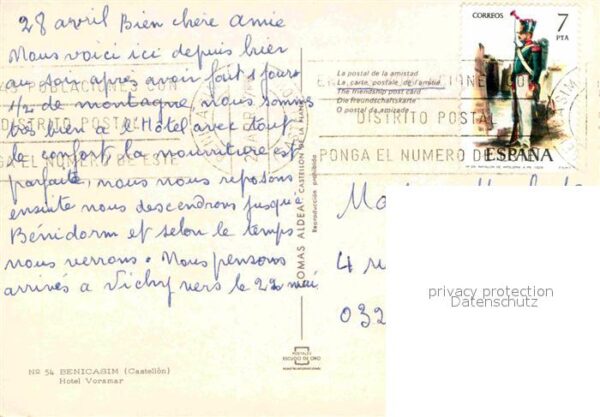 28 avril Bien chère amie
Nous voici ici depuis hier
au soir après avoir fait 1 jours
1/2 de montagne, nous sommes
très bien à l'Hôtel avec tout
le confort la nourriture est
parfaite, nous nous reposons
ensuite nous descendrons jusqu'à
Bénidorm et selon le temps
nous verrons. Nous pensons
arrivés à Vichy vers le 22 mai
Nº 54 BENICASIM (Castellón)
Hotel Voramar
POBLACIONES CON
DISTRITO POSTAL
PONGA EL NUMERO DE ESTE
La postal de la amistad
La carte postale de l'amitié
The friendship post card
Die Freundschaftskarte
O postal da amizade
EN POBLACIONES CON
DISTRITO POSTAL
PONGA EL NUMERO DE
CORREOS 7
PTA
ESPAÑA
TOMAS ALDEA CASTELLON DE LA PLANA
Reproducción prohibida
POSTALES
ESCUDO DE ORO
4
032
privacy protection
Datenschutz